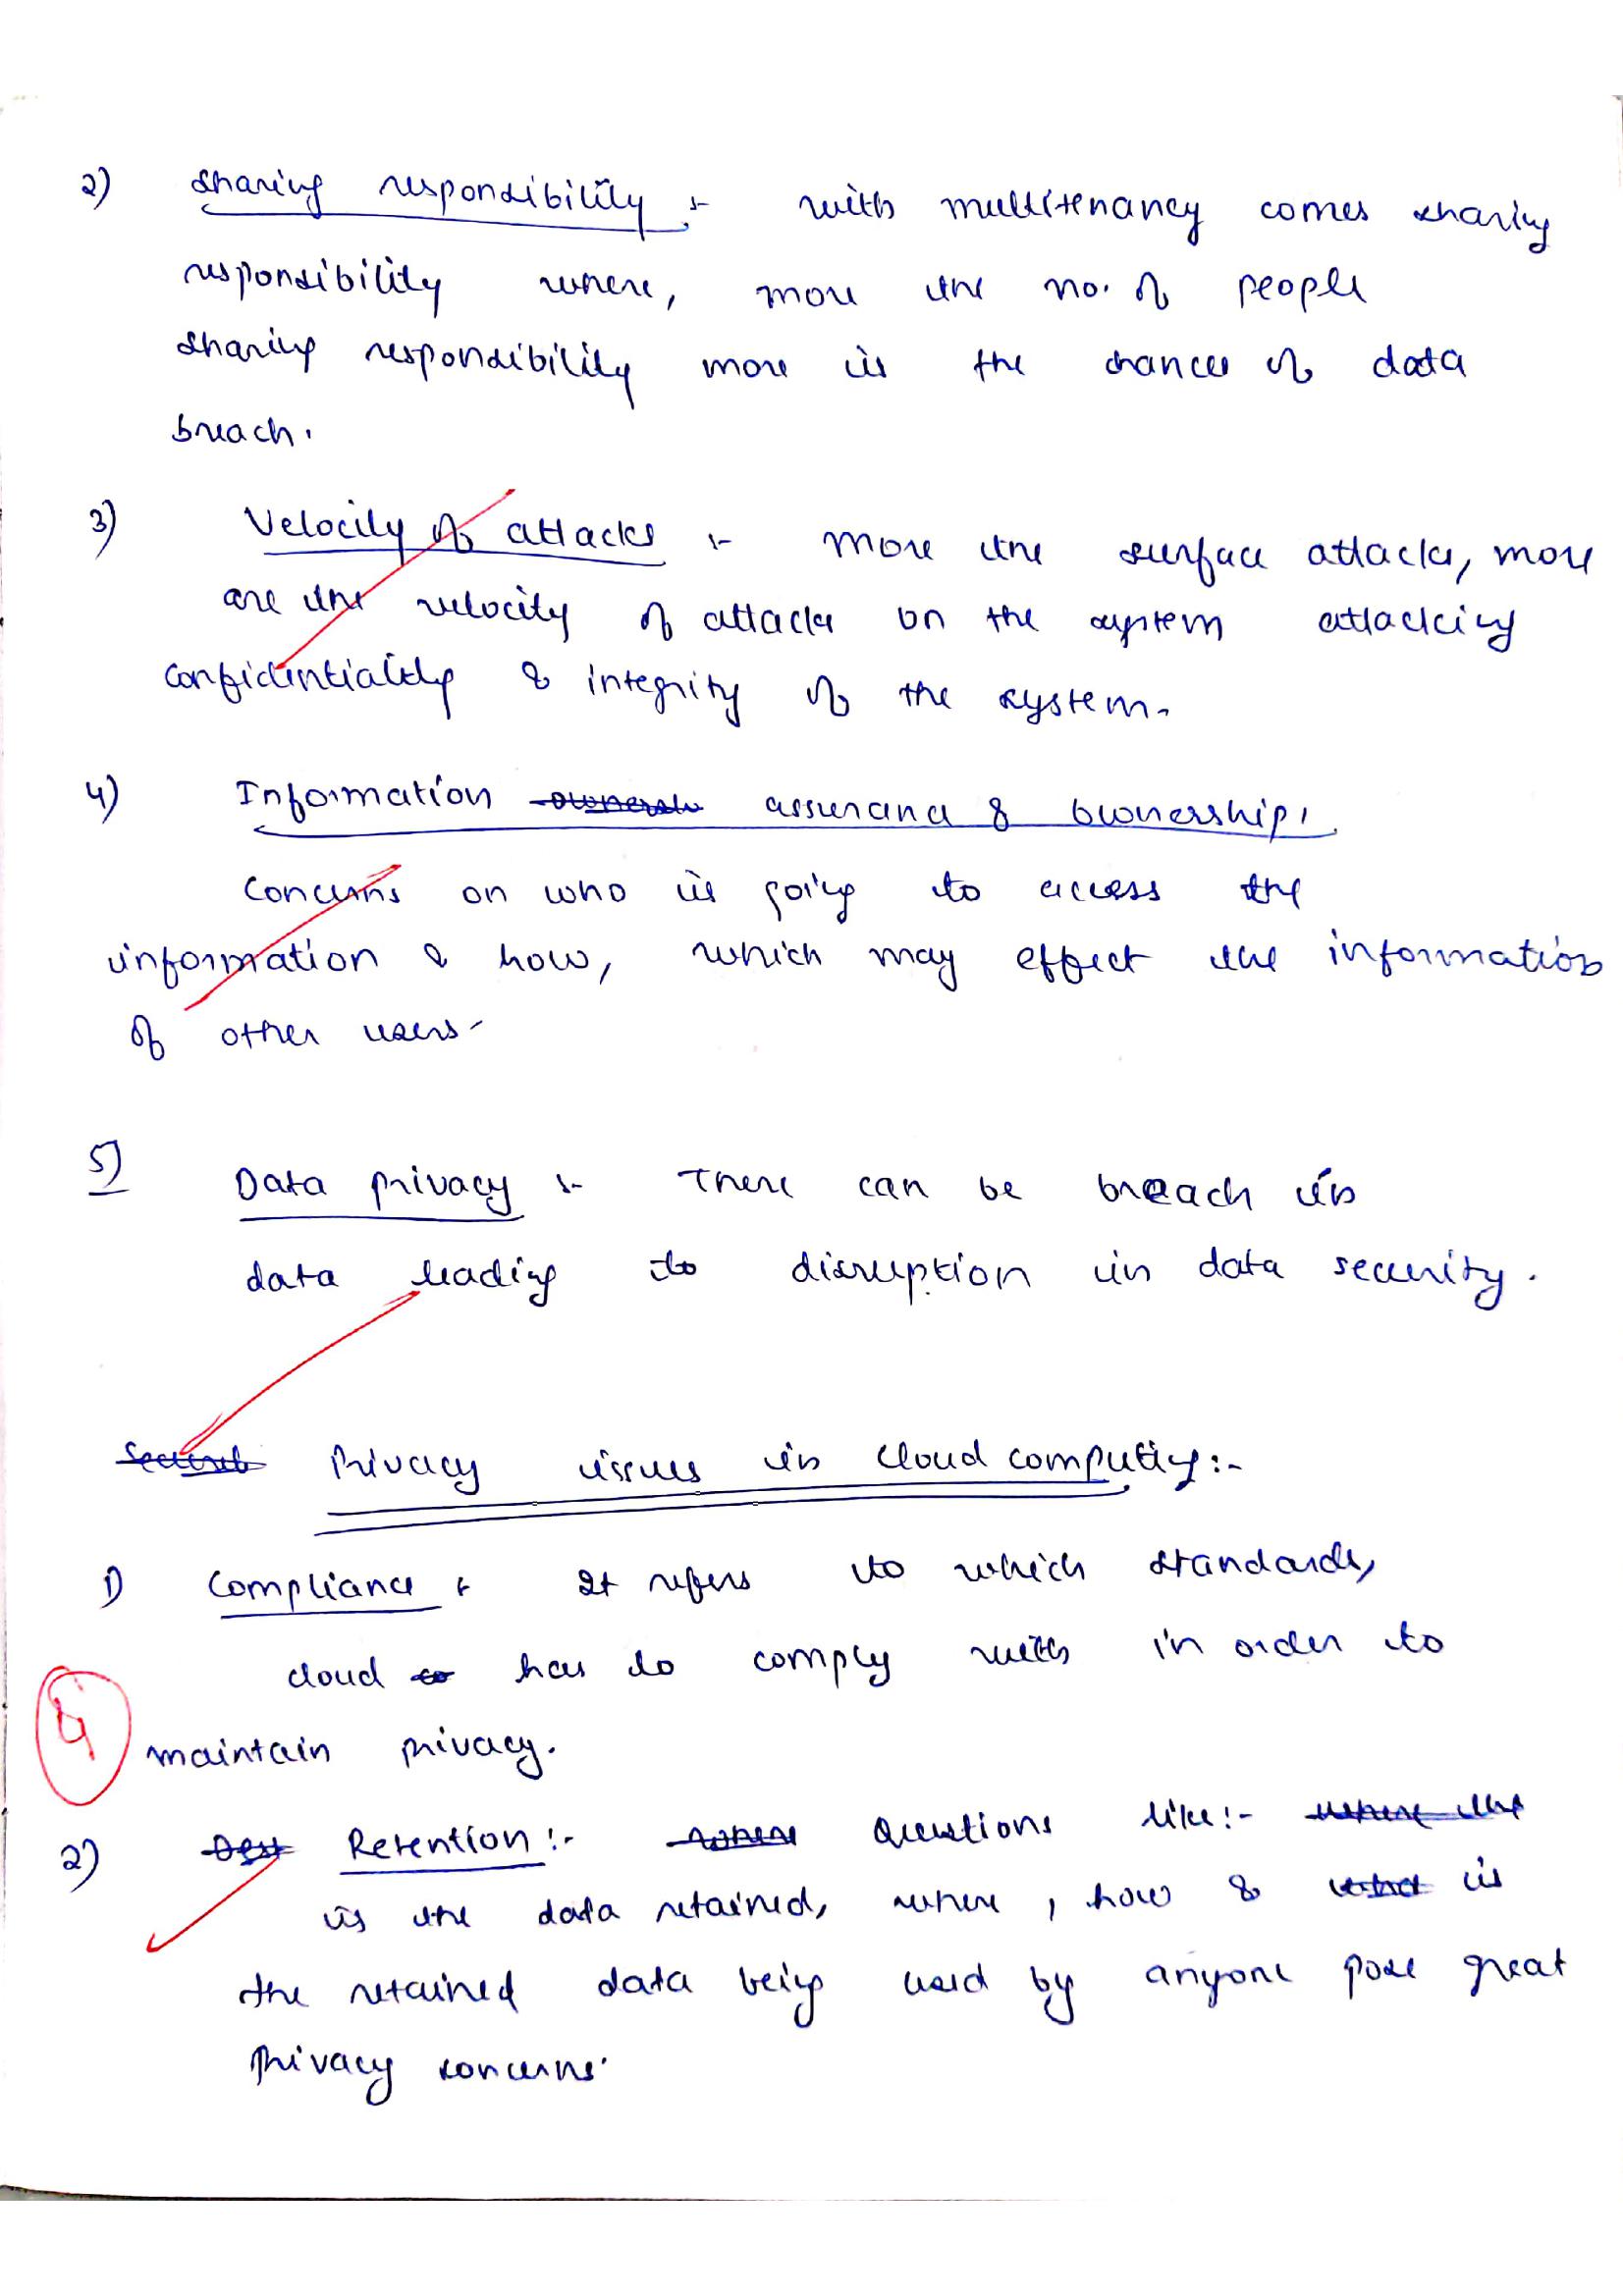 2) Sharing responsibility :- with multitenancy comes sharing
responsibility where, more the no. of people
sharing responsibility more is the chances of data
breach.
3) Velocity of attacks :- More the surface attacks, more
are the velocity of attacks on the system attacking
confidentiality & integrity of the system.
4) Information assurance & ownership,
Concerns on who is going to access the
information & how, which may effect the information
of other users.
5) Data privacy :- There can be breach in
data leading to disruption in data security.
Privacy issues in cloud computing :-
1) Compliance : It refers to which standards,
cloud has to comply with in order to
4
maintain privacy.
2) Retention :- Questions like :-
is the data retained, where, how & is
the retained data being used by anyone pose great
privacy concerns.